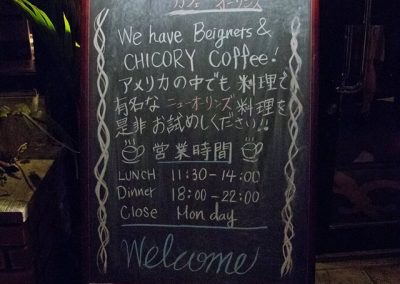 カフェ オーリンズ
We have Beigners &
CHICORY Coffee!
アメリカの中でも料理で
有名なニューオーリンズ料理を
是非お試しください!!
営業時間
LUNCH 11:30-14:00
Dinner 18:00-22:00
Close Monday
Welcome